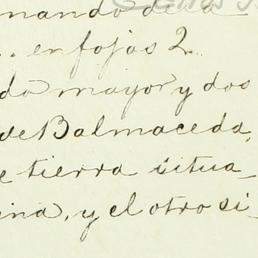 nando de la
.. en fojas 2.
do mayor y dos
de Balmaceda,
e tierra situa-
ina, y el otro si-